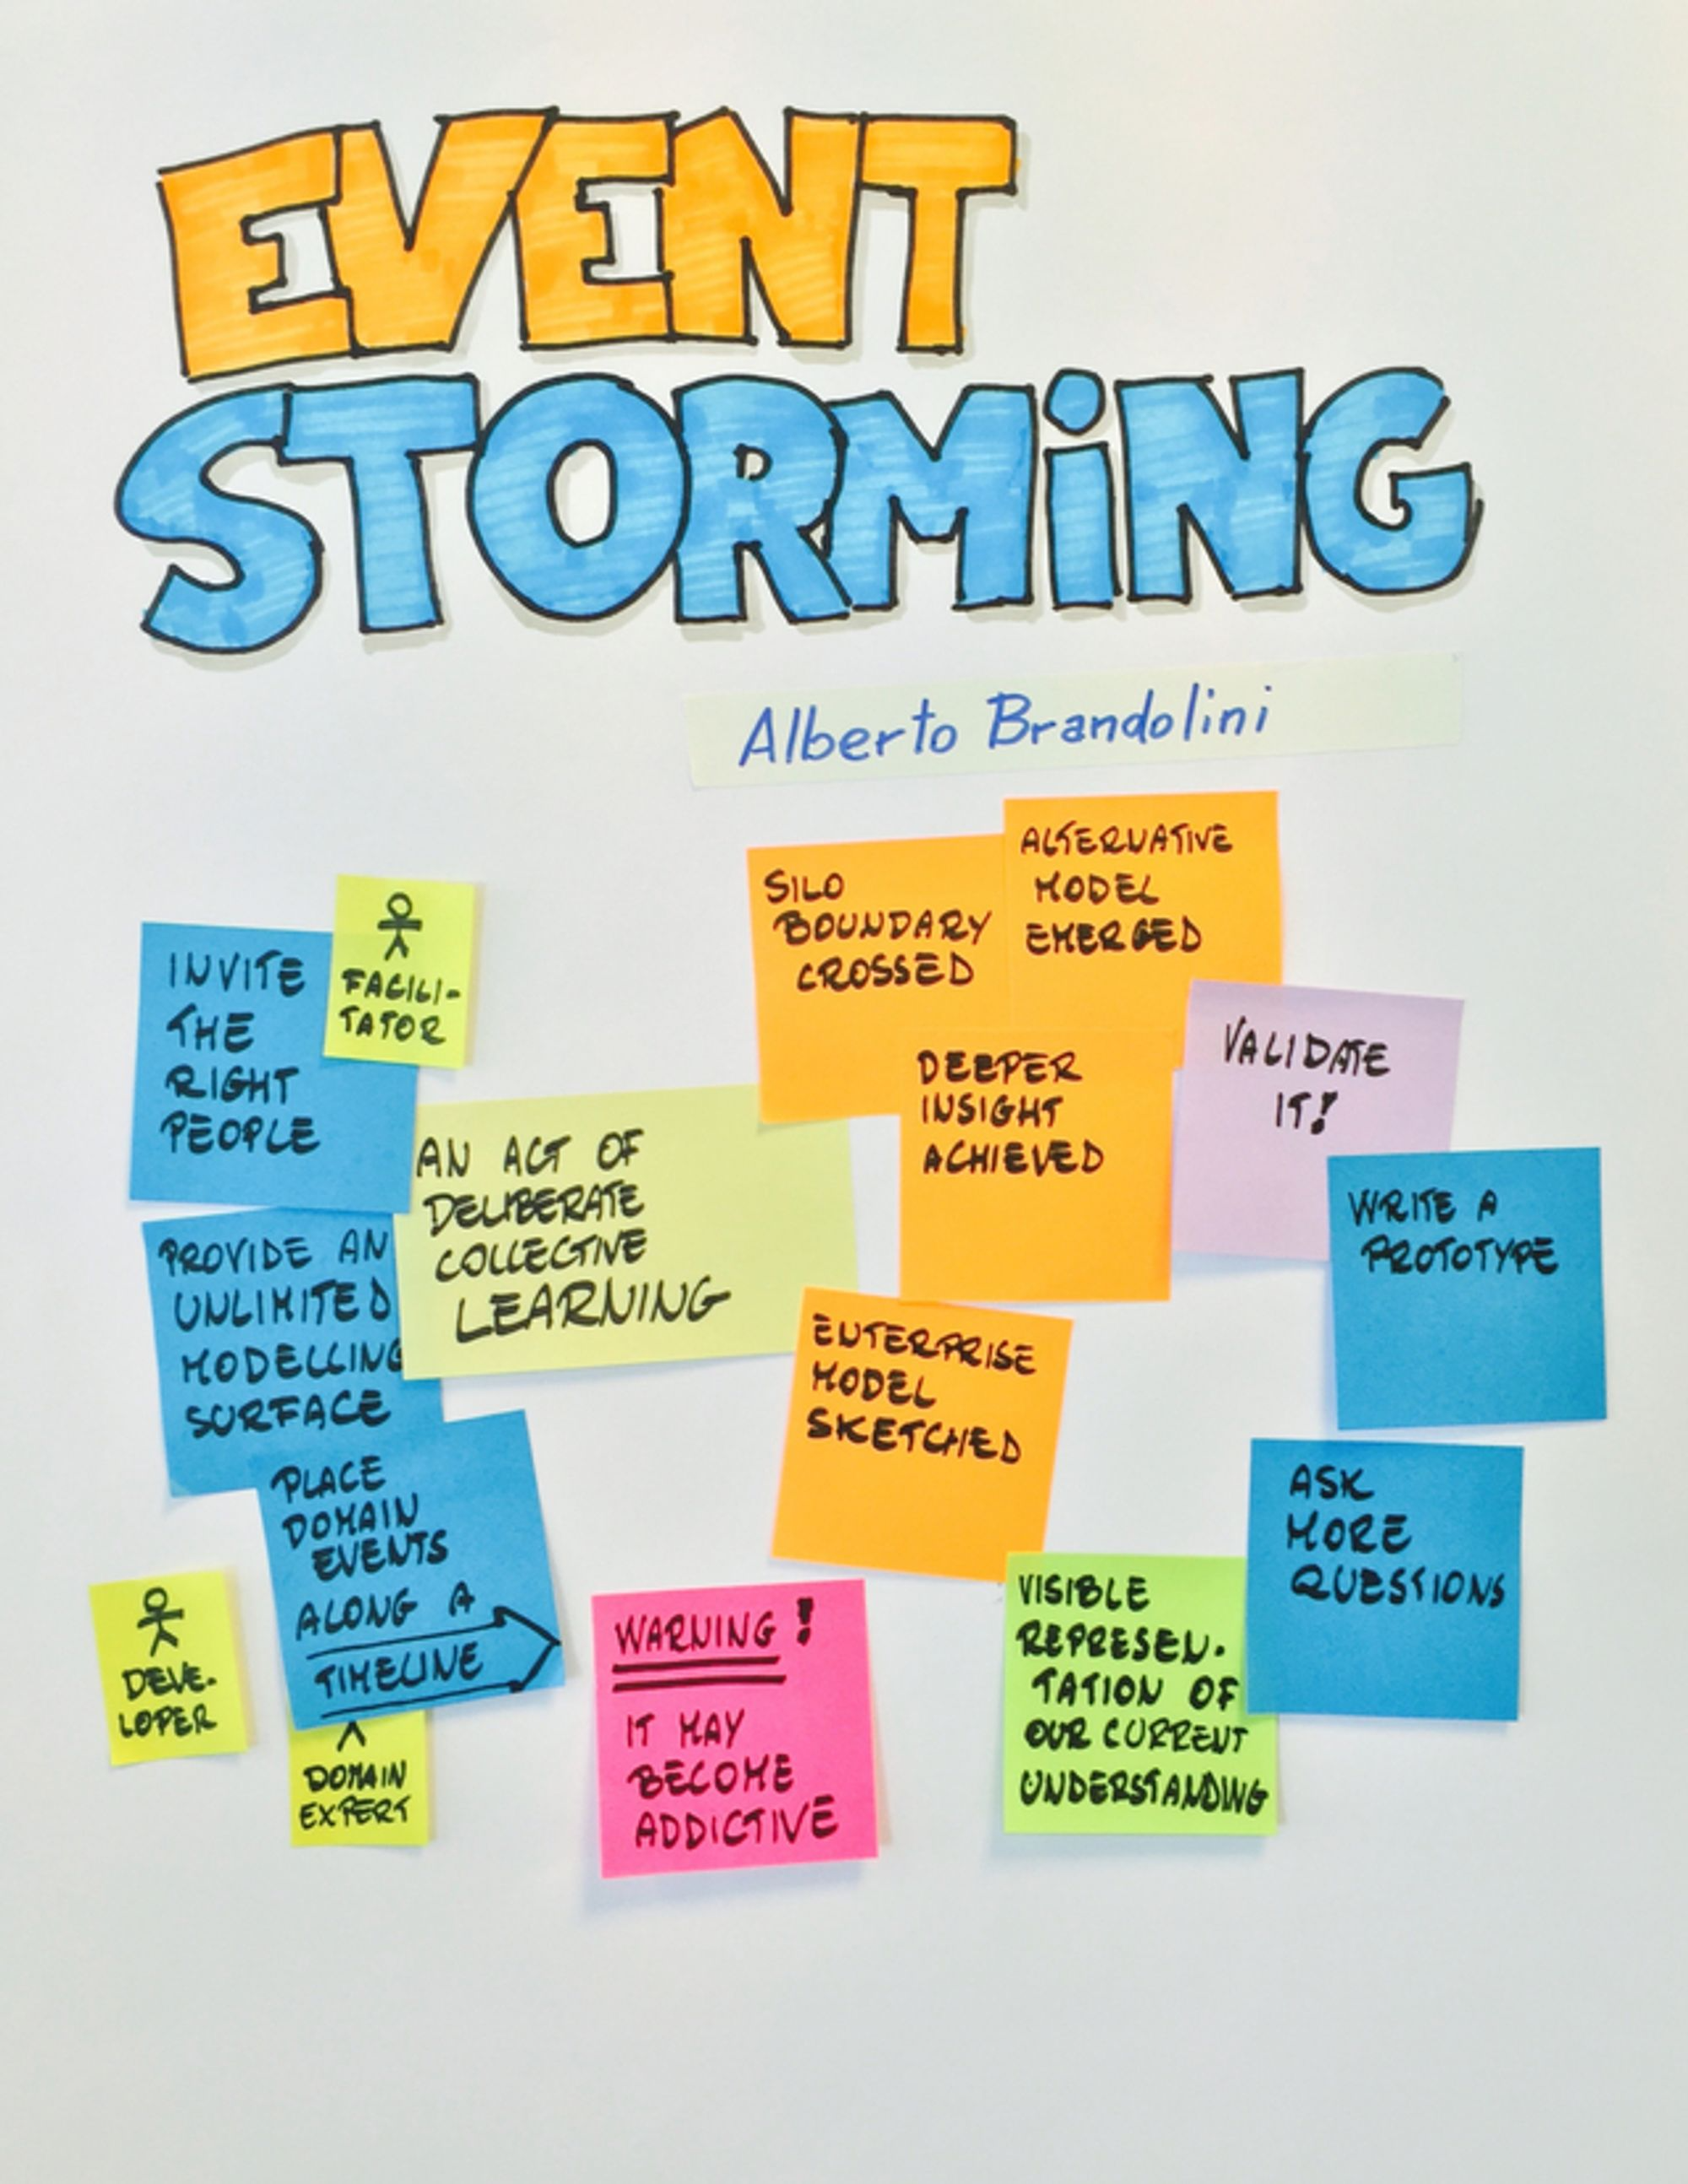 EVENT
STORMiNG
Alberto Brandolini
INVITE
THE
RIGHT
PEOPLE
FACILI-
TATOR
SILO
BOUNDARY
CROSSED
ALTERNATIVE
MODEL
EMERGED
AN ACT OF
DELIBERATE
COLLECTIVE
LEARNING
DEEPER
INSIGHT
ACHIEVED
VALIDATE
IT!
WRITE A
PROTOTYPE
PROVIDE AN
UNLIMITED
MODELLING
SURFACE
ENTERPRISE
MODEL
SKETCHED
PLACE
DOMAIN
EVENTS
ALONG A
TIMELINE
ASK
MORE
QUESTIONS
DEVE-
LOPER
DOMAIN
EXPERT
WARNING!
IT MAY
BECOME
ADDICTIVE
VISIBLE
REPRESEN-
TATION OF
OUR CURRENT
UNDERSTANDING